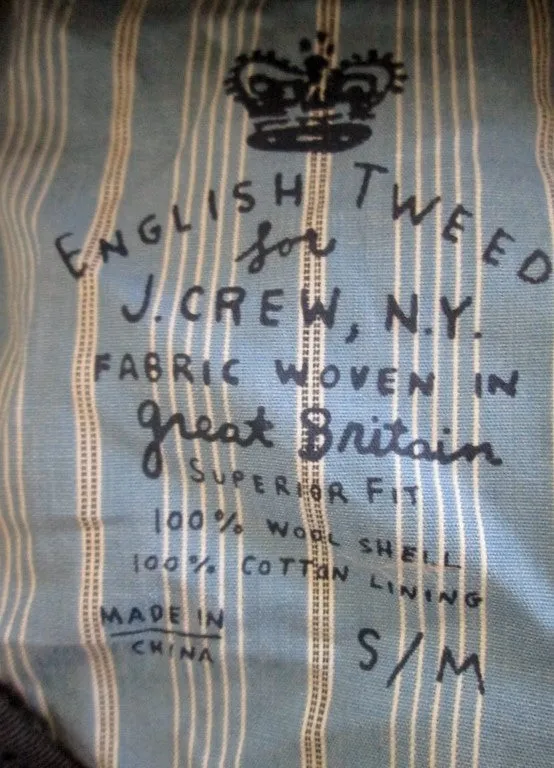 ENGLISH TWEED
for
J. CREW, N.Y.
FABRIC WOVEN IN
great Britain
SUPERIOR FIT
100% WOOL SHELL
100% COTTON LINING
MADE IN
CHINA
S/M